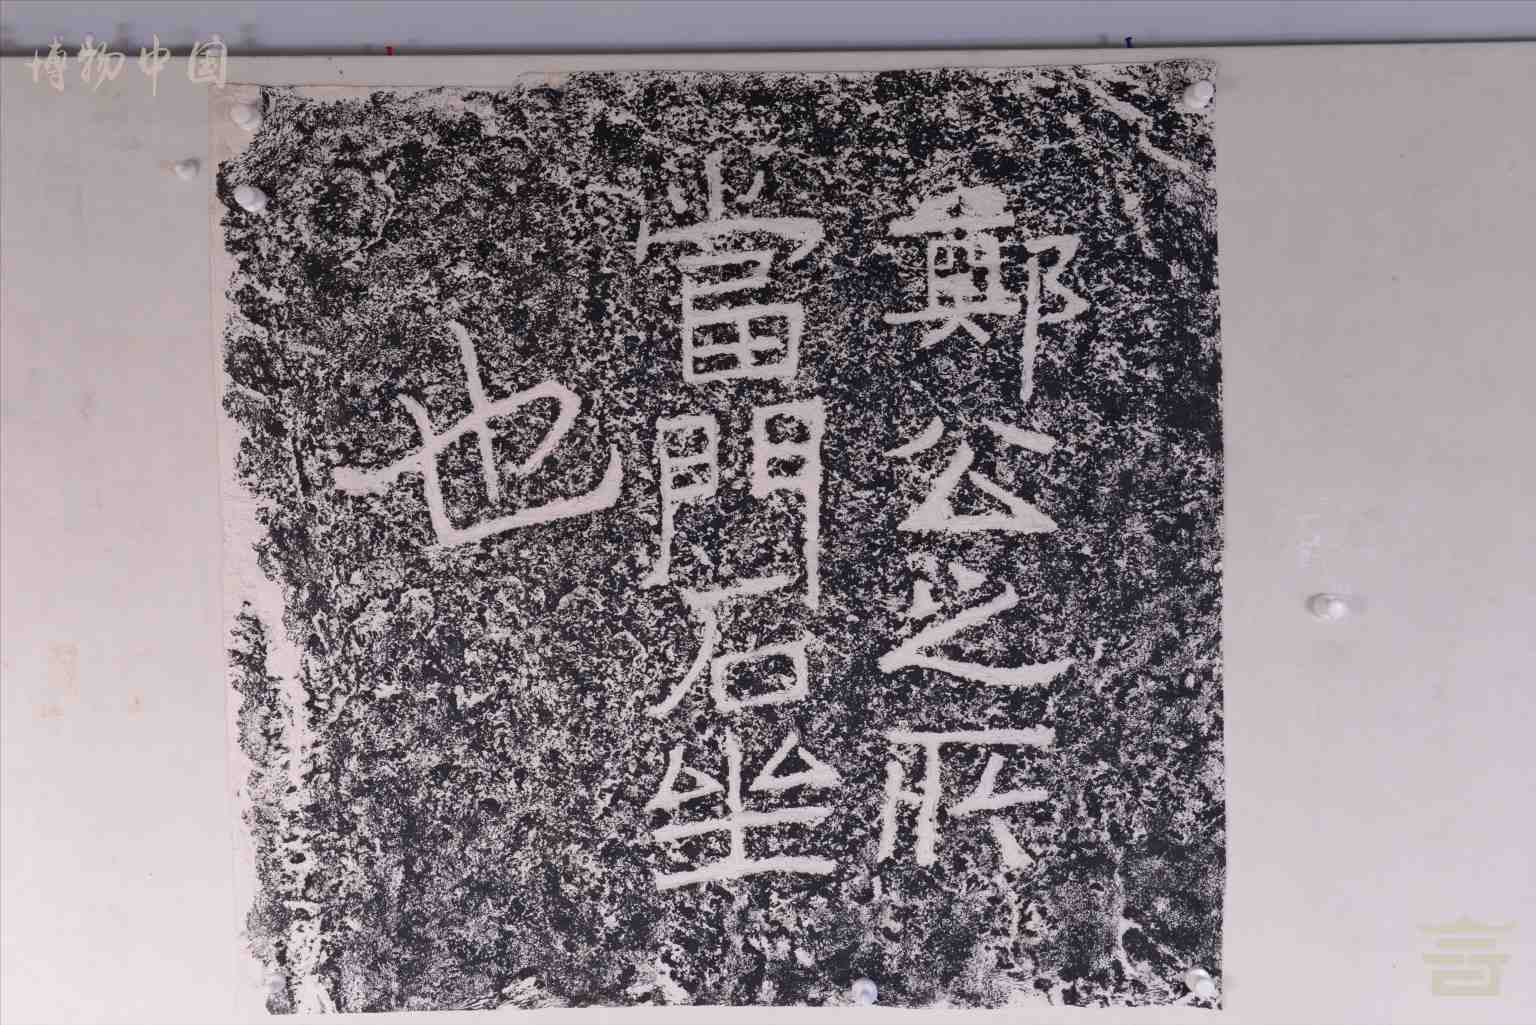 鄭公之所
當門石坐
也
博物中国